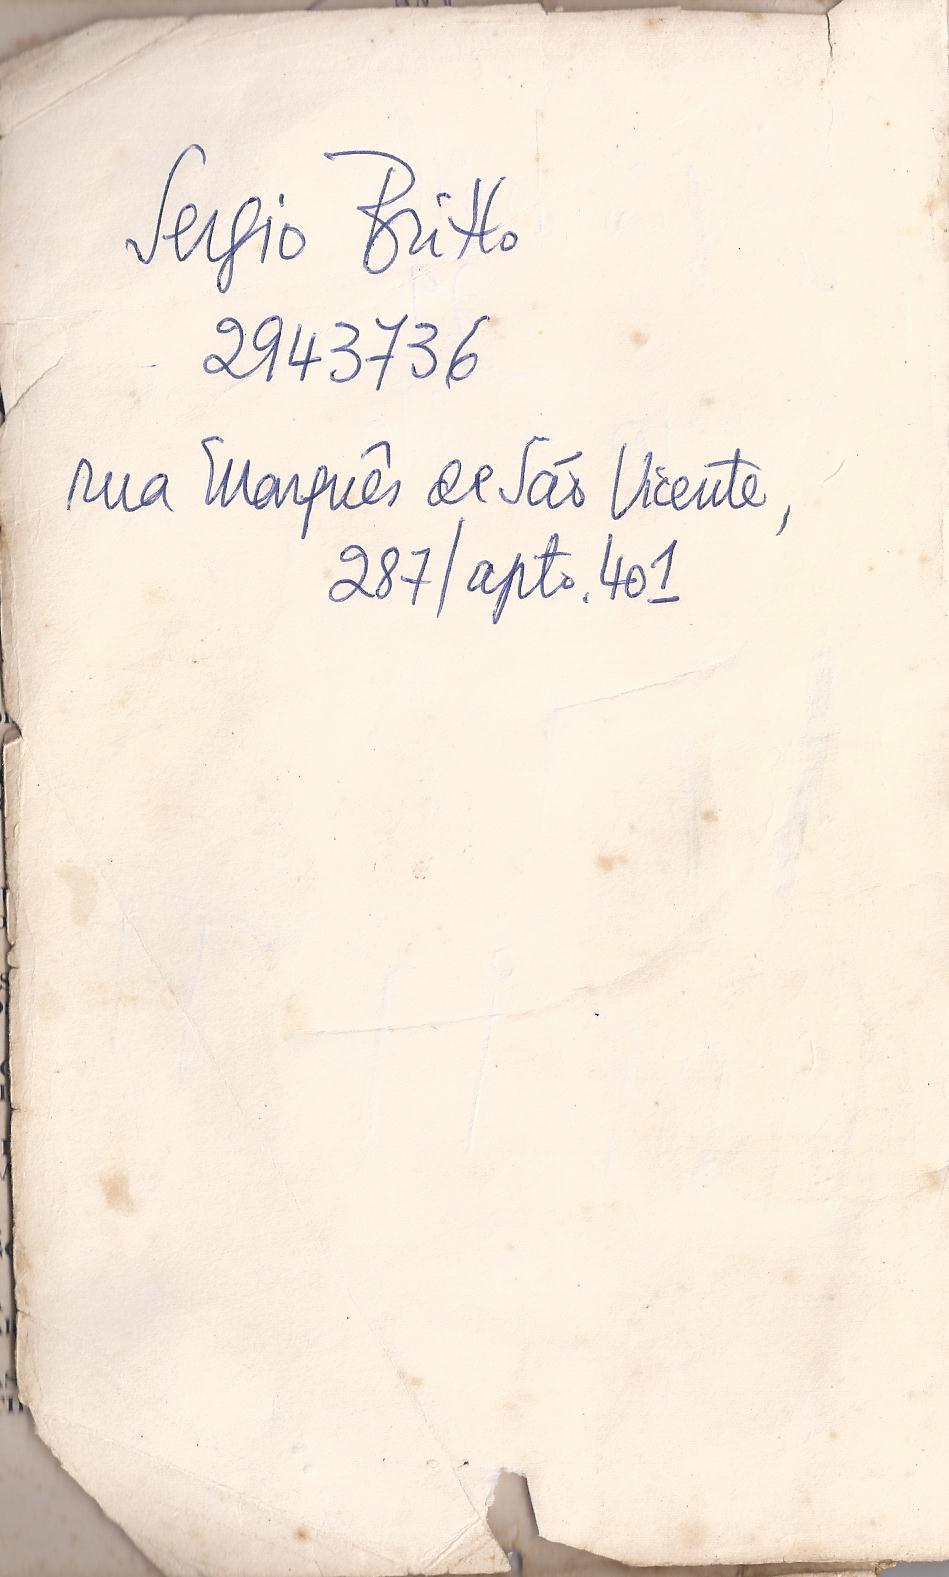 Sergio Britto
2943736
rua Marquês de São Vicente,
287/apto. 401